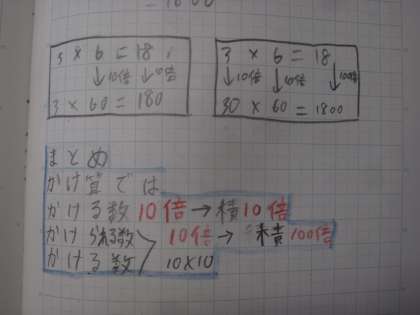 = 1800
3 × 6 = 18
↓10倍 ↓10倍
3 × 60 = 180
3 × 6 = 18
↓10倍 ↓10倍 ↓100倍
30 × 60 = 1800
まとめ
かけ算では
かける数10倍→積10倍
かけられる数 10倍→積100倍
かける数 10×10